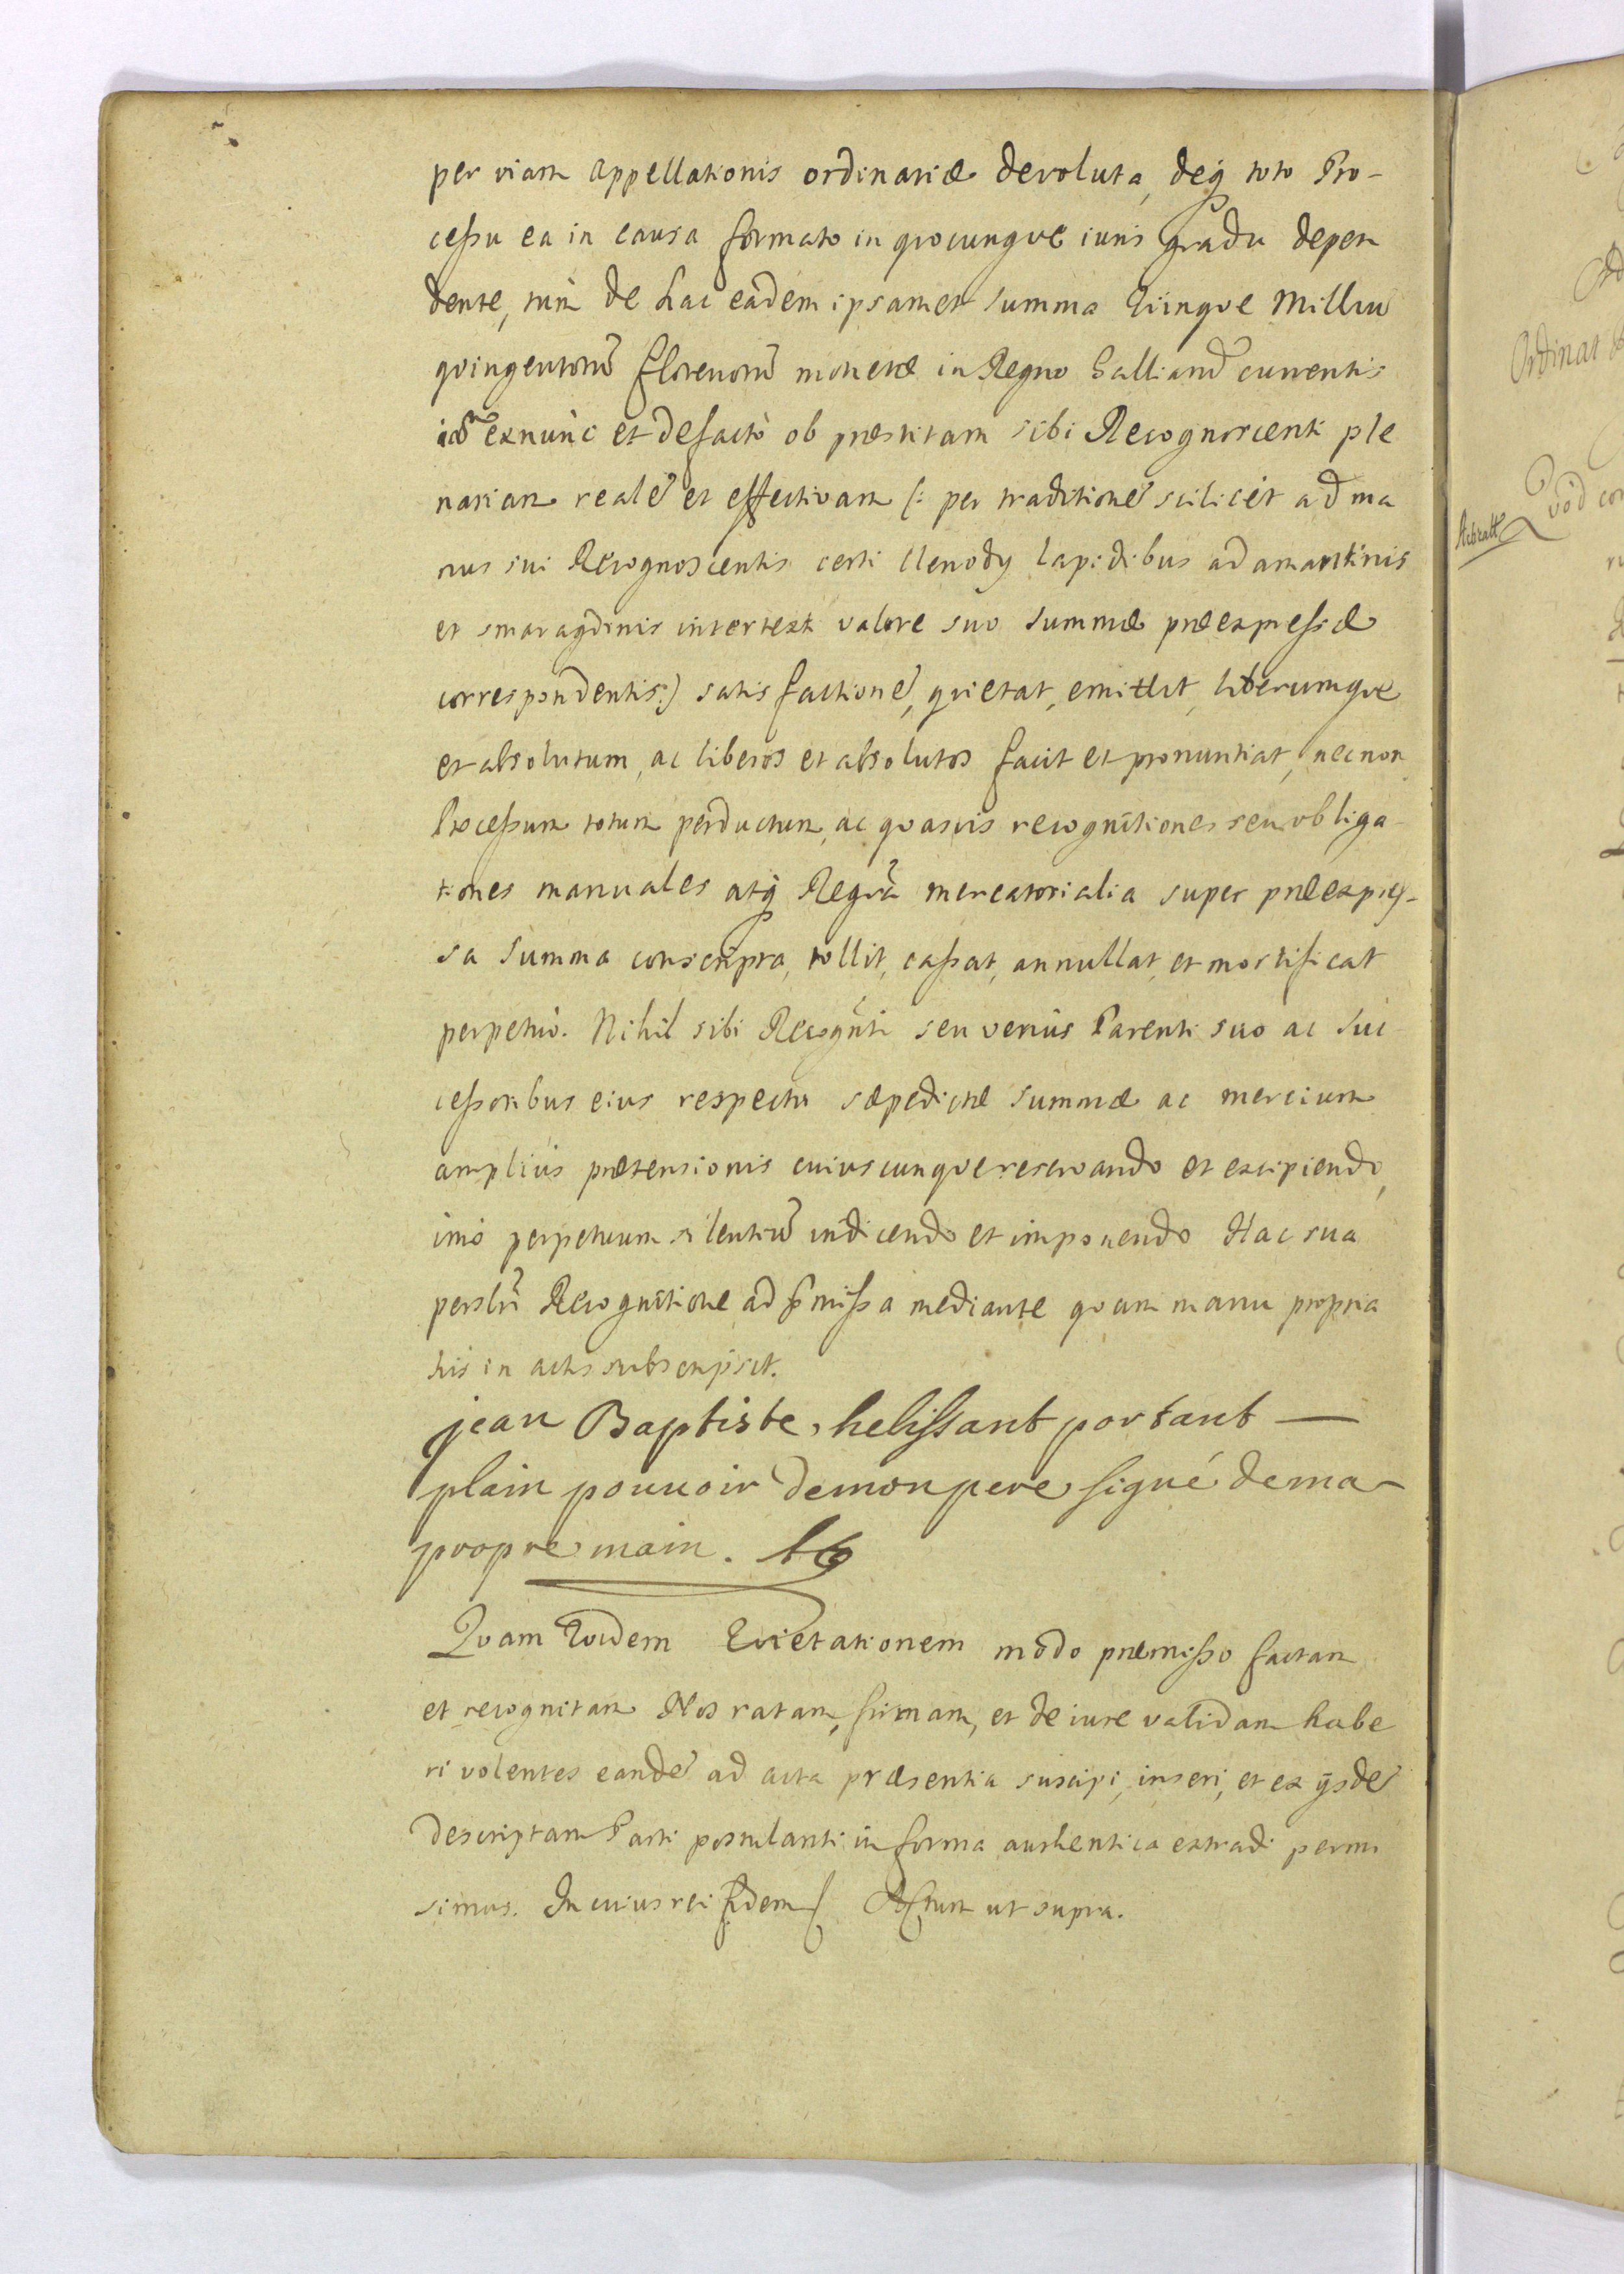 per viam appellationis ordinariæ devoluta, deq́ toto Pro-
ceſsu ea in causa formato in qvocunqve iuris gradu depen
dente, tùm de hac eadem ipsamet summa Qvinqve Milliū
qvingentorū florenorū monetæ in Regno Galliarū currentis
exnùnc et defactò ob præstitam sibi Recognoscenti ple
nariam realē et effectivam (: per traditionē scilicèt ad ma
nus sui Recognoscentis certi Clenodÿ lapidibus adamantinis
et smaragdinis intertexti valore suo summæ præexpreſsæ
correspondentis :) satisfactionē, qvietat, emittit, liberumqve
et absolutum, ac liberos et absolutos facit et pronuntiat, necnon
Proceſsum totum perductum, ac qvasvis recognitiones seu obliga
tiones manuales atq́ Regr̃a mercatorialia super præexpreſ-
sa summa conscripta, tollit, caſsat, annullat, et mortificat
perpetuò. Nihil sibi Recogñti seu veriùs Parenti suo ac Suc
ceſsoribus eius respectu sæpedictæ summæ ac mercium
ampliùs prætensionis cuiuscunqve reservando et excipiendo,
imò perpetuum silentiū indicendo et imponendo Hac sua
persl̃ri Recognitione ad p̃miſsa mediante qvam manu propria
his in actis subscripsit.
jean Baptiste, heliſsant portant —
plain pouuoir demonpere signé dema
propre main.
Qvam qvidem Qvietationem modo præmiſso factam
et recognitam Nos ratam, firmam, et de iure validam habe
ri volentes eandē ad acta præsentia suscipi, inseri, et ex ÿsdē
descriptam Parti postulanti in forma authentica extradi permi
simus. In cuius rei fidem Actum ut supra.